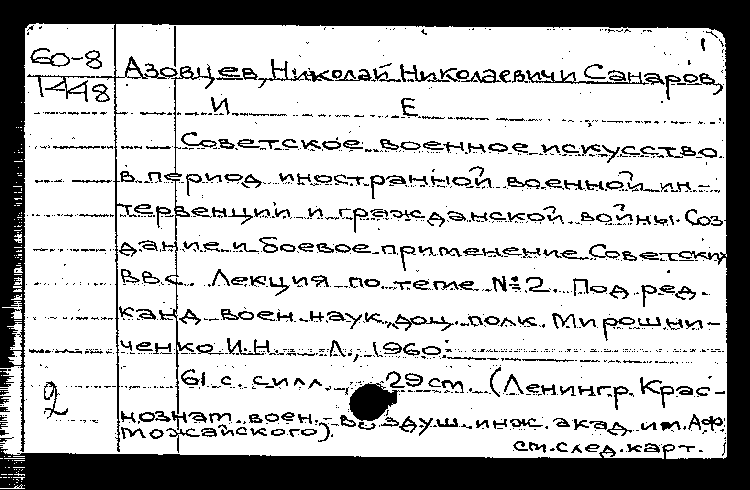 1
60-8
1448
Азовцев, Николай Николаевич и Санаров,
И Е
Советское военное искусство
в период иностранной военной ин-
тервенции и гражданской войны. Соз
дание и боевое применение Советских
ВВС. Лекция по теме №2. Под ред.
канд. воен. наук, доц. полк. Мирошни-
ченко И.Н. Л., 1960.
61 с. с илл. 29 cm. (Ленингр. Крас-
2
нознам. воен.-воздуш. инж. акад им. А.Ф.
Можайского).
см. след. карт.